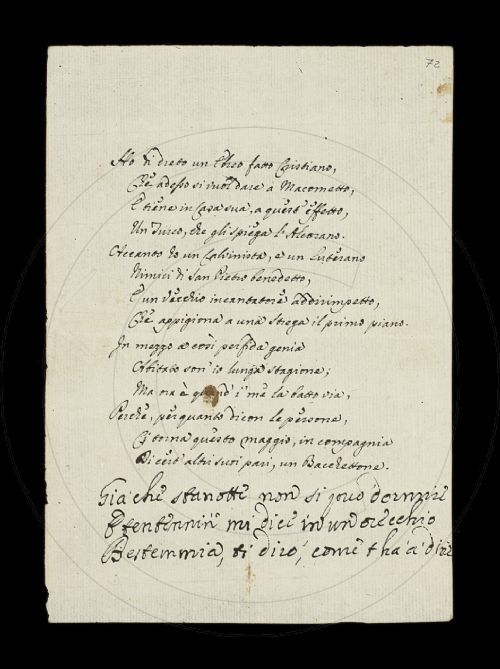 72
Ho di dreto un Ebreo fatto Cristiano,
Ch'è adesso si vuol dare à Macometto,
E tiene in Casa sua, a quest'effetto,
Un Turco, che gli spiega l'Alcorano.
Accanto ho un Calvinista, e un Luterano
Nimici di San Pietro benedetto,
E un Vecchio incantatore addirimpetto,
Che appigiona a una strega il primo piano.
In mezzo a così perfida genia
Abitato son'io lunga stagione;
Ma ora è quand'i' me la batto via,
Perche, per quanto dicon le persone,
Ci torna questo Maggio, in compagnia
Di cert'altri suoi pari, un Bacchettone.
Già che stanotte non si può dormire
E tentennin mi dice in un orecchio
Bestemmia, ti dirò, come t'ha a dire